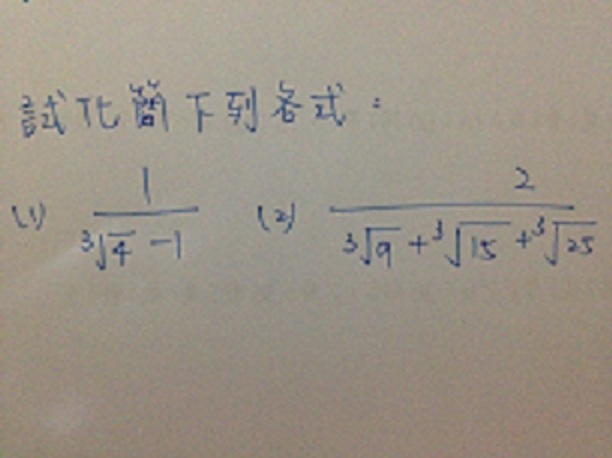 試化簡下列各式：
(1) 1/(³√4 - 1) (2) 2/(³√9 + ³√15 + ³√25)